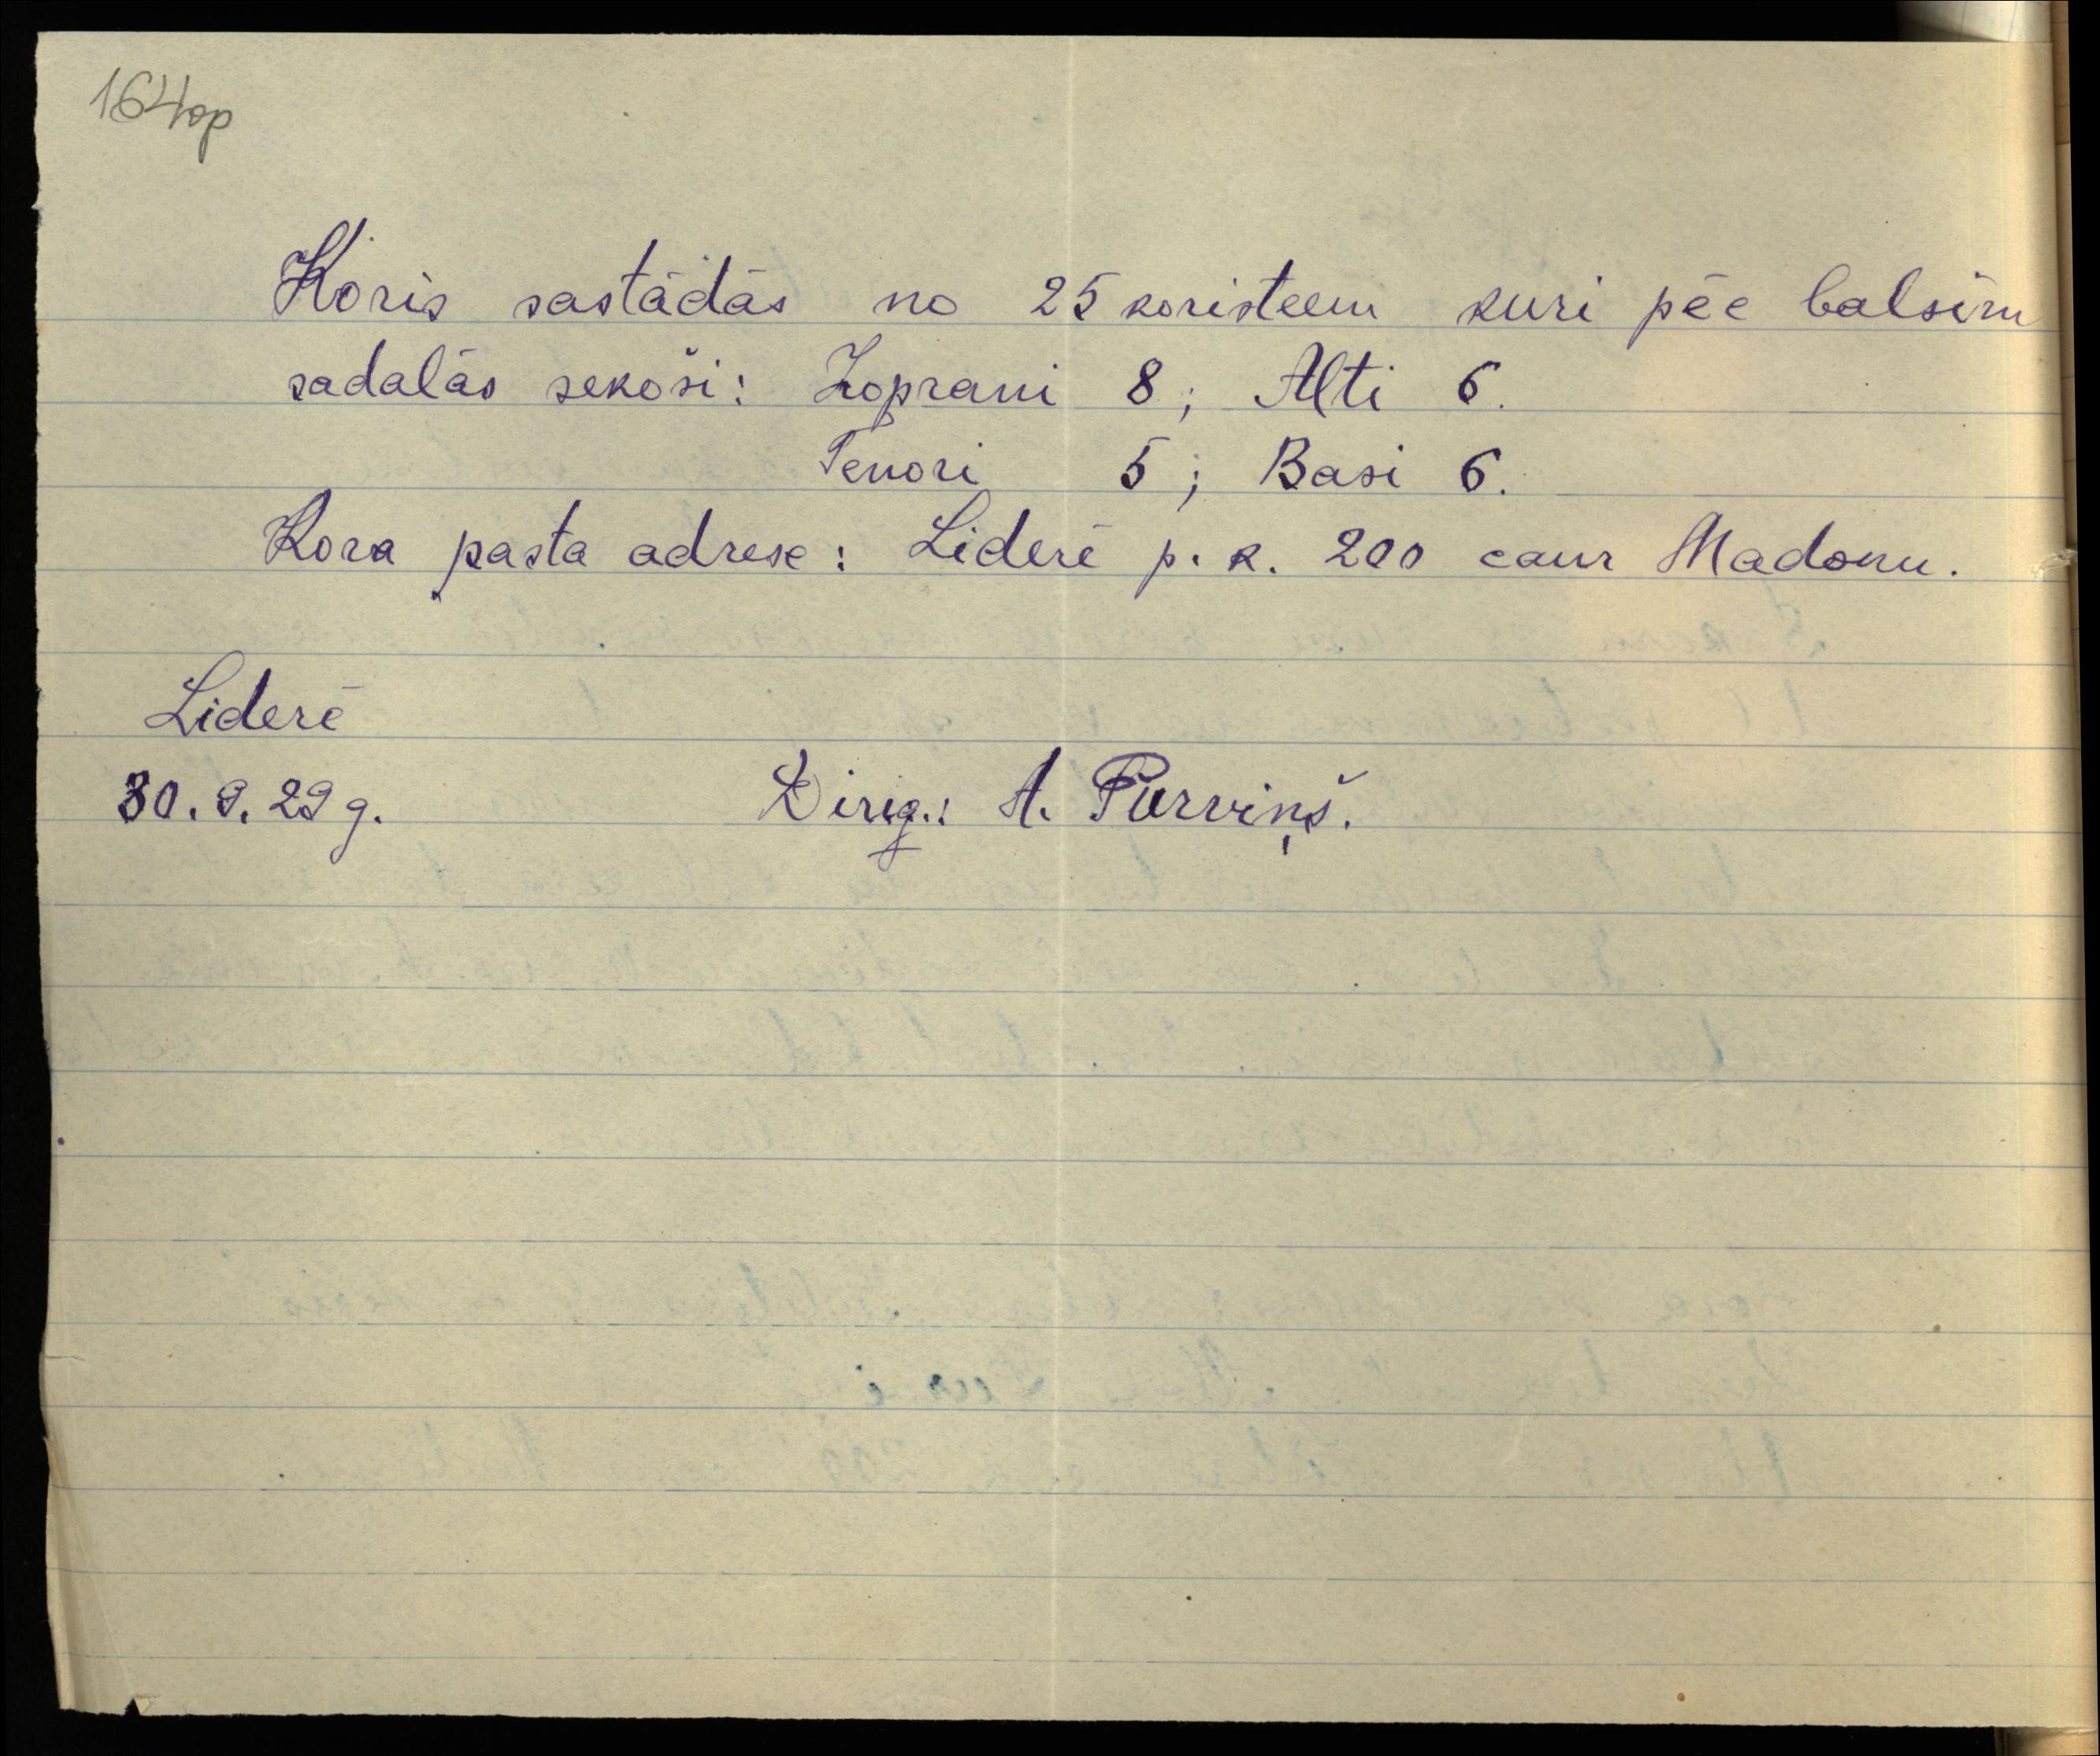 164op
Koris sastādās no 25 koristeem kuri pēc balsīm
sadalās sekoši: Zoprani 8; Alti 6.
Tenori 5; Basi 6.
Kora pasta adrese: Liderē p. k. 200 caur Madonu.
Liderē
30. 9. 29 g.
Dirig.: A. Purviņš.